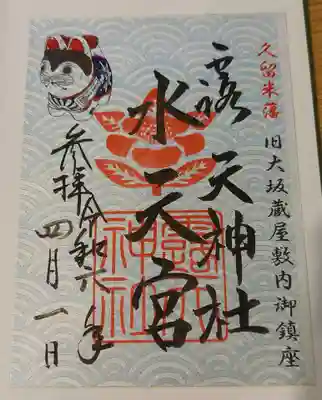 久留米藩
旧大坂蔵屋敷内御鎮座
露天神社
水天宮
参拝令和六年
四月一日
露天神社